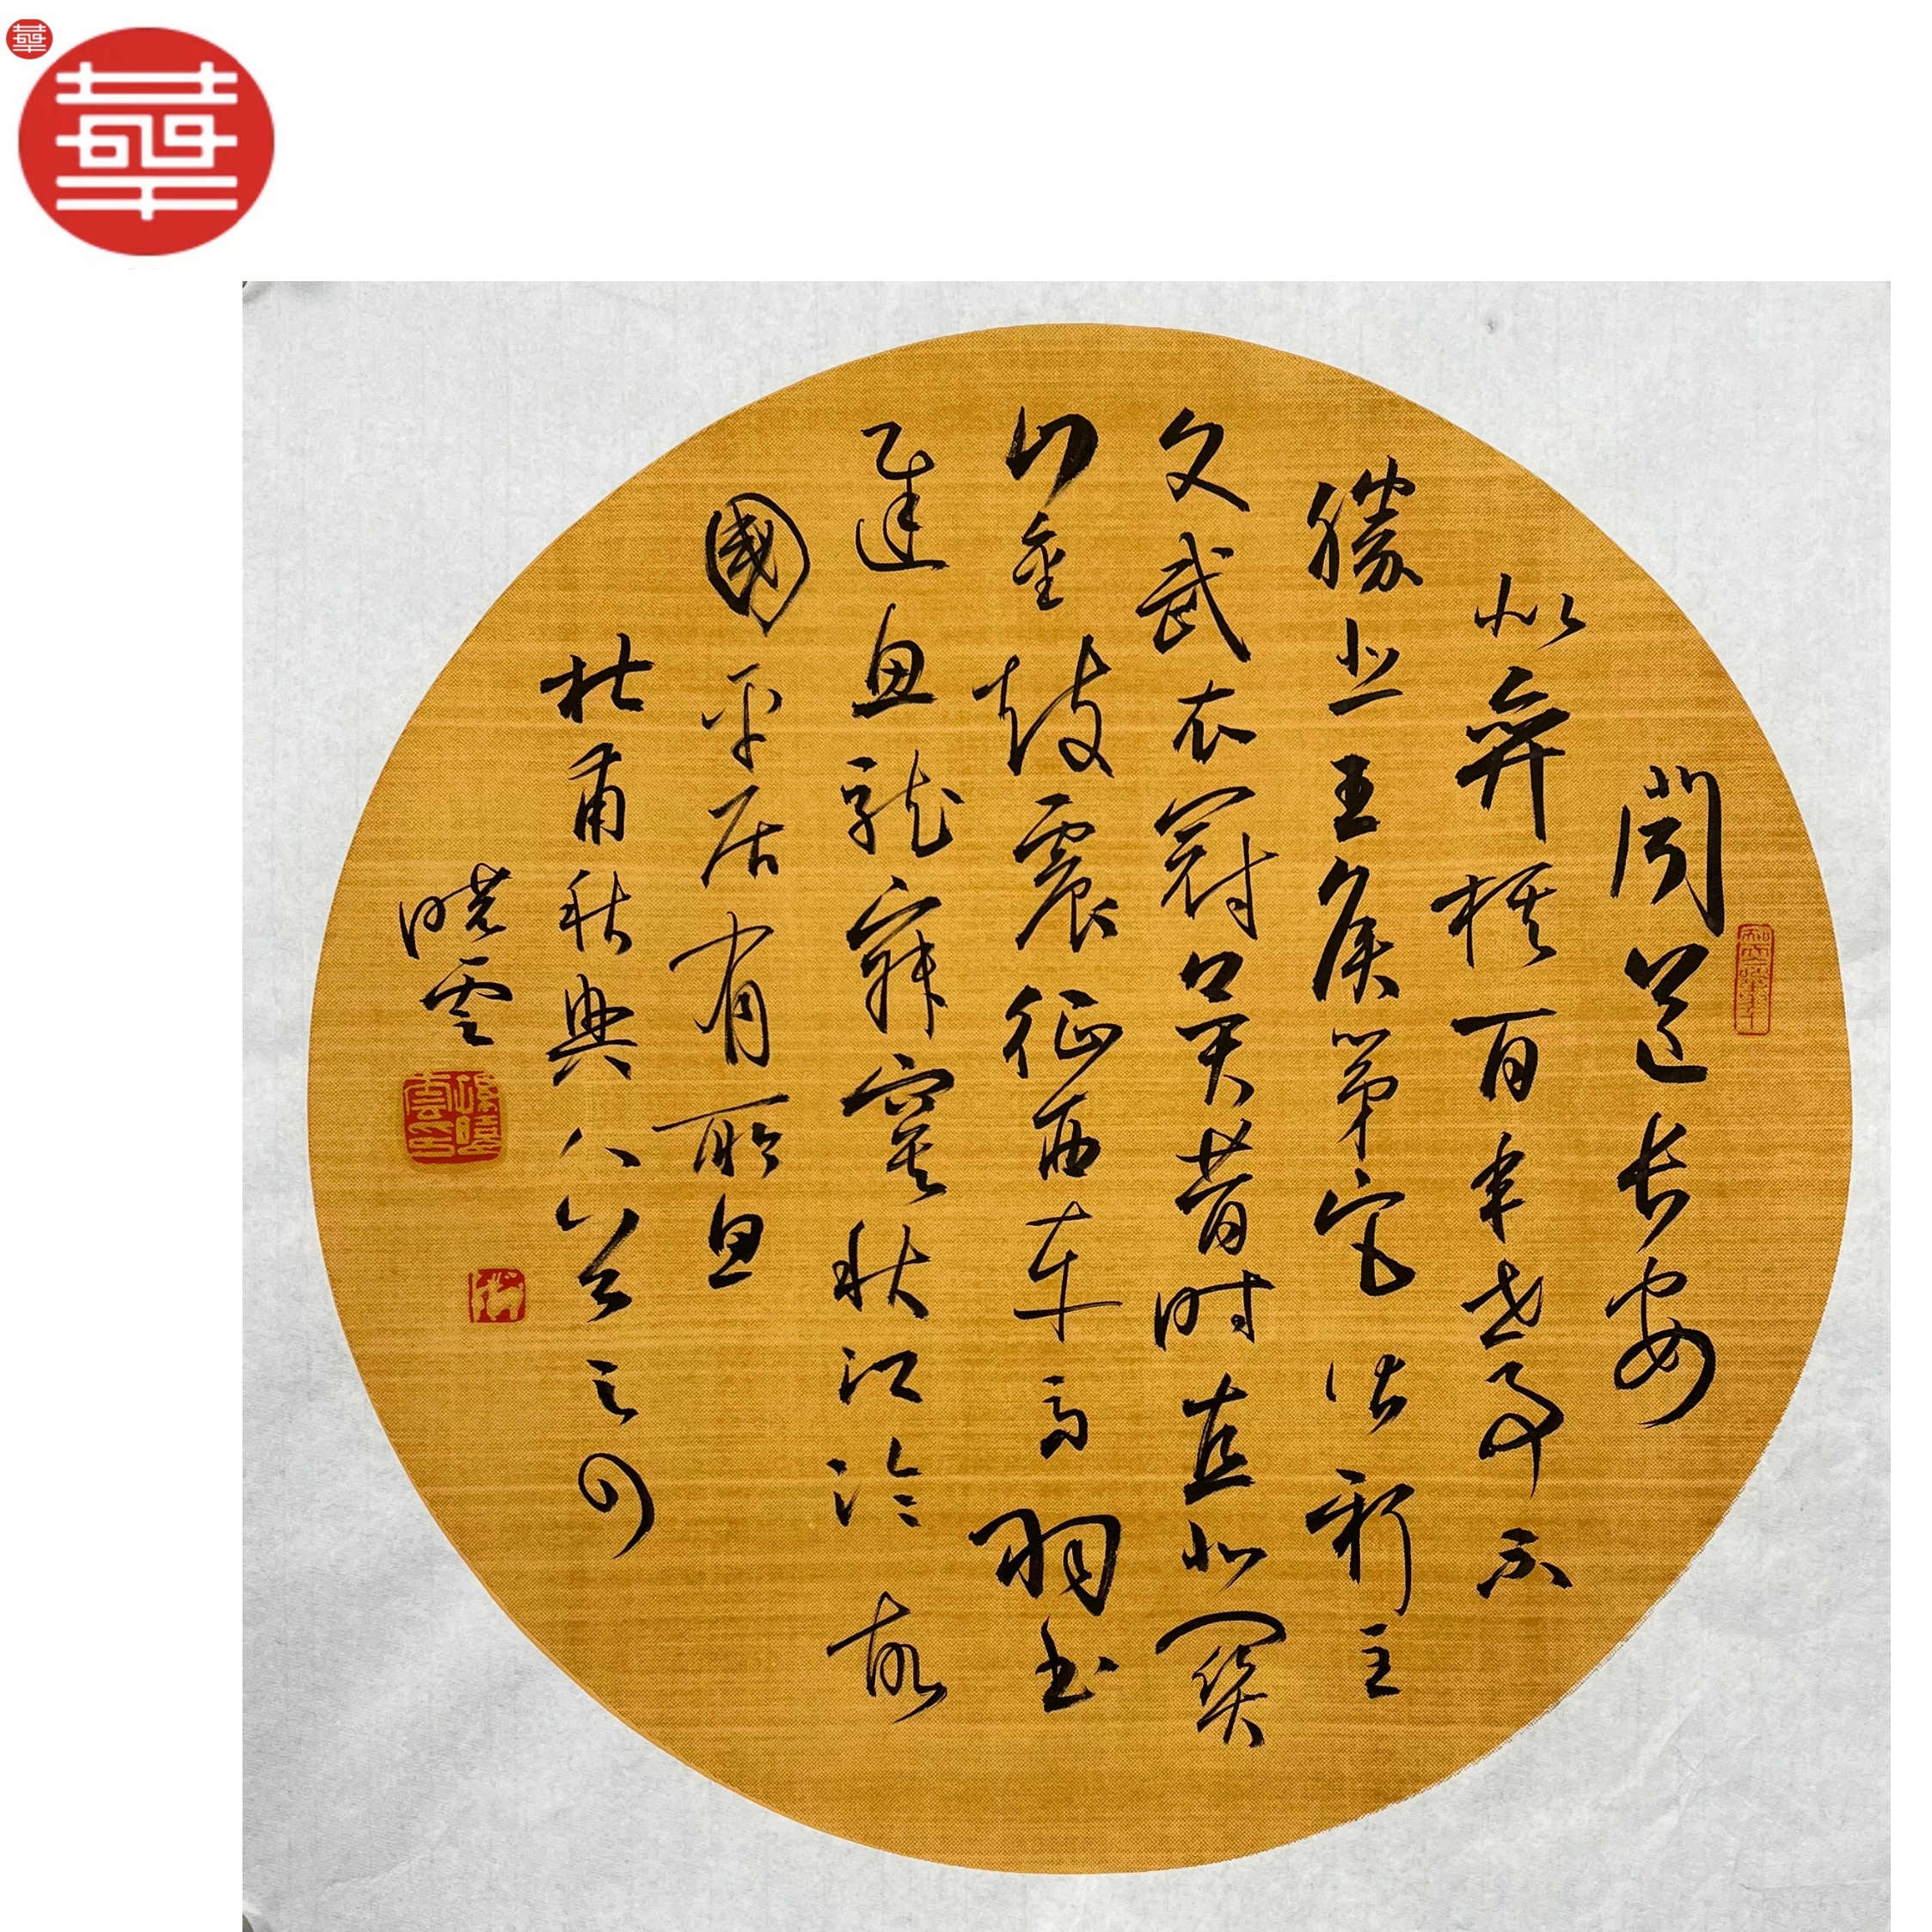 華
華
聞道長安
似弈棋百年世事不
勝悲王侯第宅皆新主
文武衣冠異昔时直北関
山金鼓震征西车马羽书
遲鱼龍寂寞秋江冷故
國平居有所思
杜甫秋興八首之四
晓雲